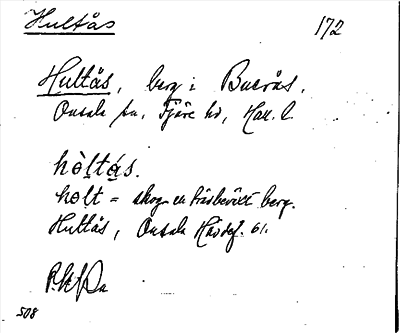 Hultås 172
Hultås, berg i Buerås.
Onsala sn, Fjäre hd, Hall. l.
hòltás.
holt = skog en trädbevuxet berg.
Hultås, Onsala Härdef. 61.
508